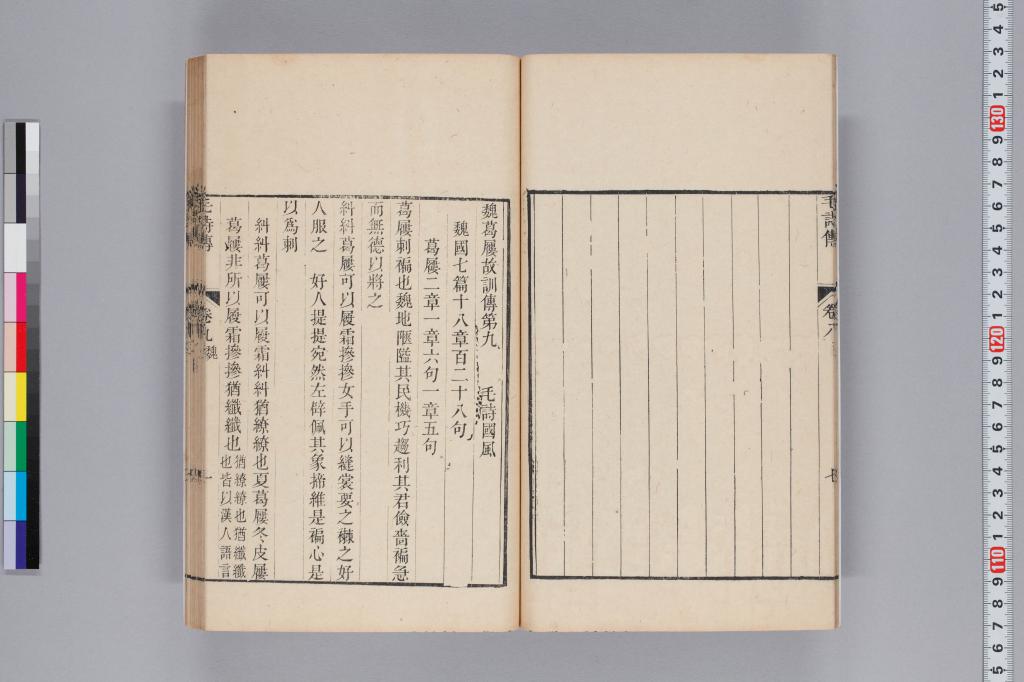 毛詩傳
卷八
七
魏葛屨故訓傳第九 毛詩國風
魏國七篇十八章百二十八句
葛屨二章一章六句一章五句
葛屨刺褊也魏地陿隘其民機巧趨利其君儉嗇褊急
而無德以將之
糾糾葛屨可以履霜摻摻女手可以縫裳要之襋之好
人服之 好人提提宛然左辟佩其象揥維是褊心是
以爲刺
糾糾葛屨可以履霜糾糾猶繚繚也夏葛屨冬皮屨
葛屨非所以履霜摻摻猶纖纖也猶繚繚也猶纖纖
也皆以漢人語言
毛詩傳
卷九 魏
一
5
4
3
2
1
130
9
8
7
6
5
4
3
2
1
120
9
8
7
6
5
4
3
2
1
110
9
8
7
6
5